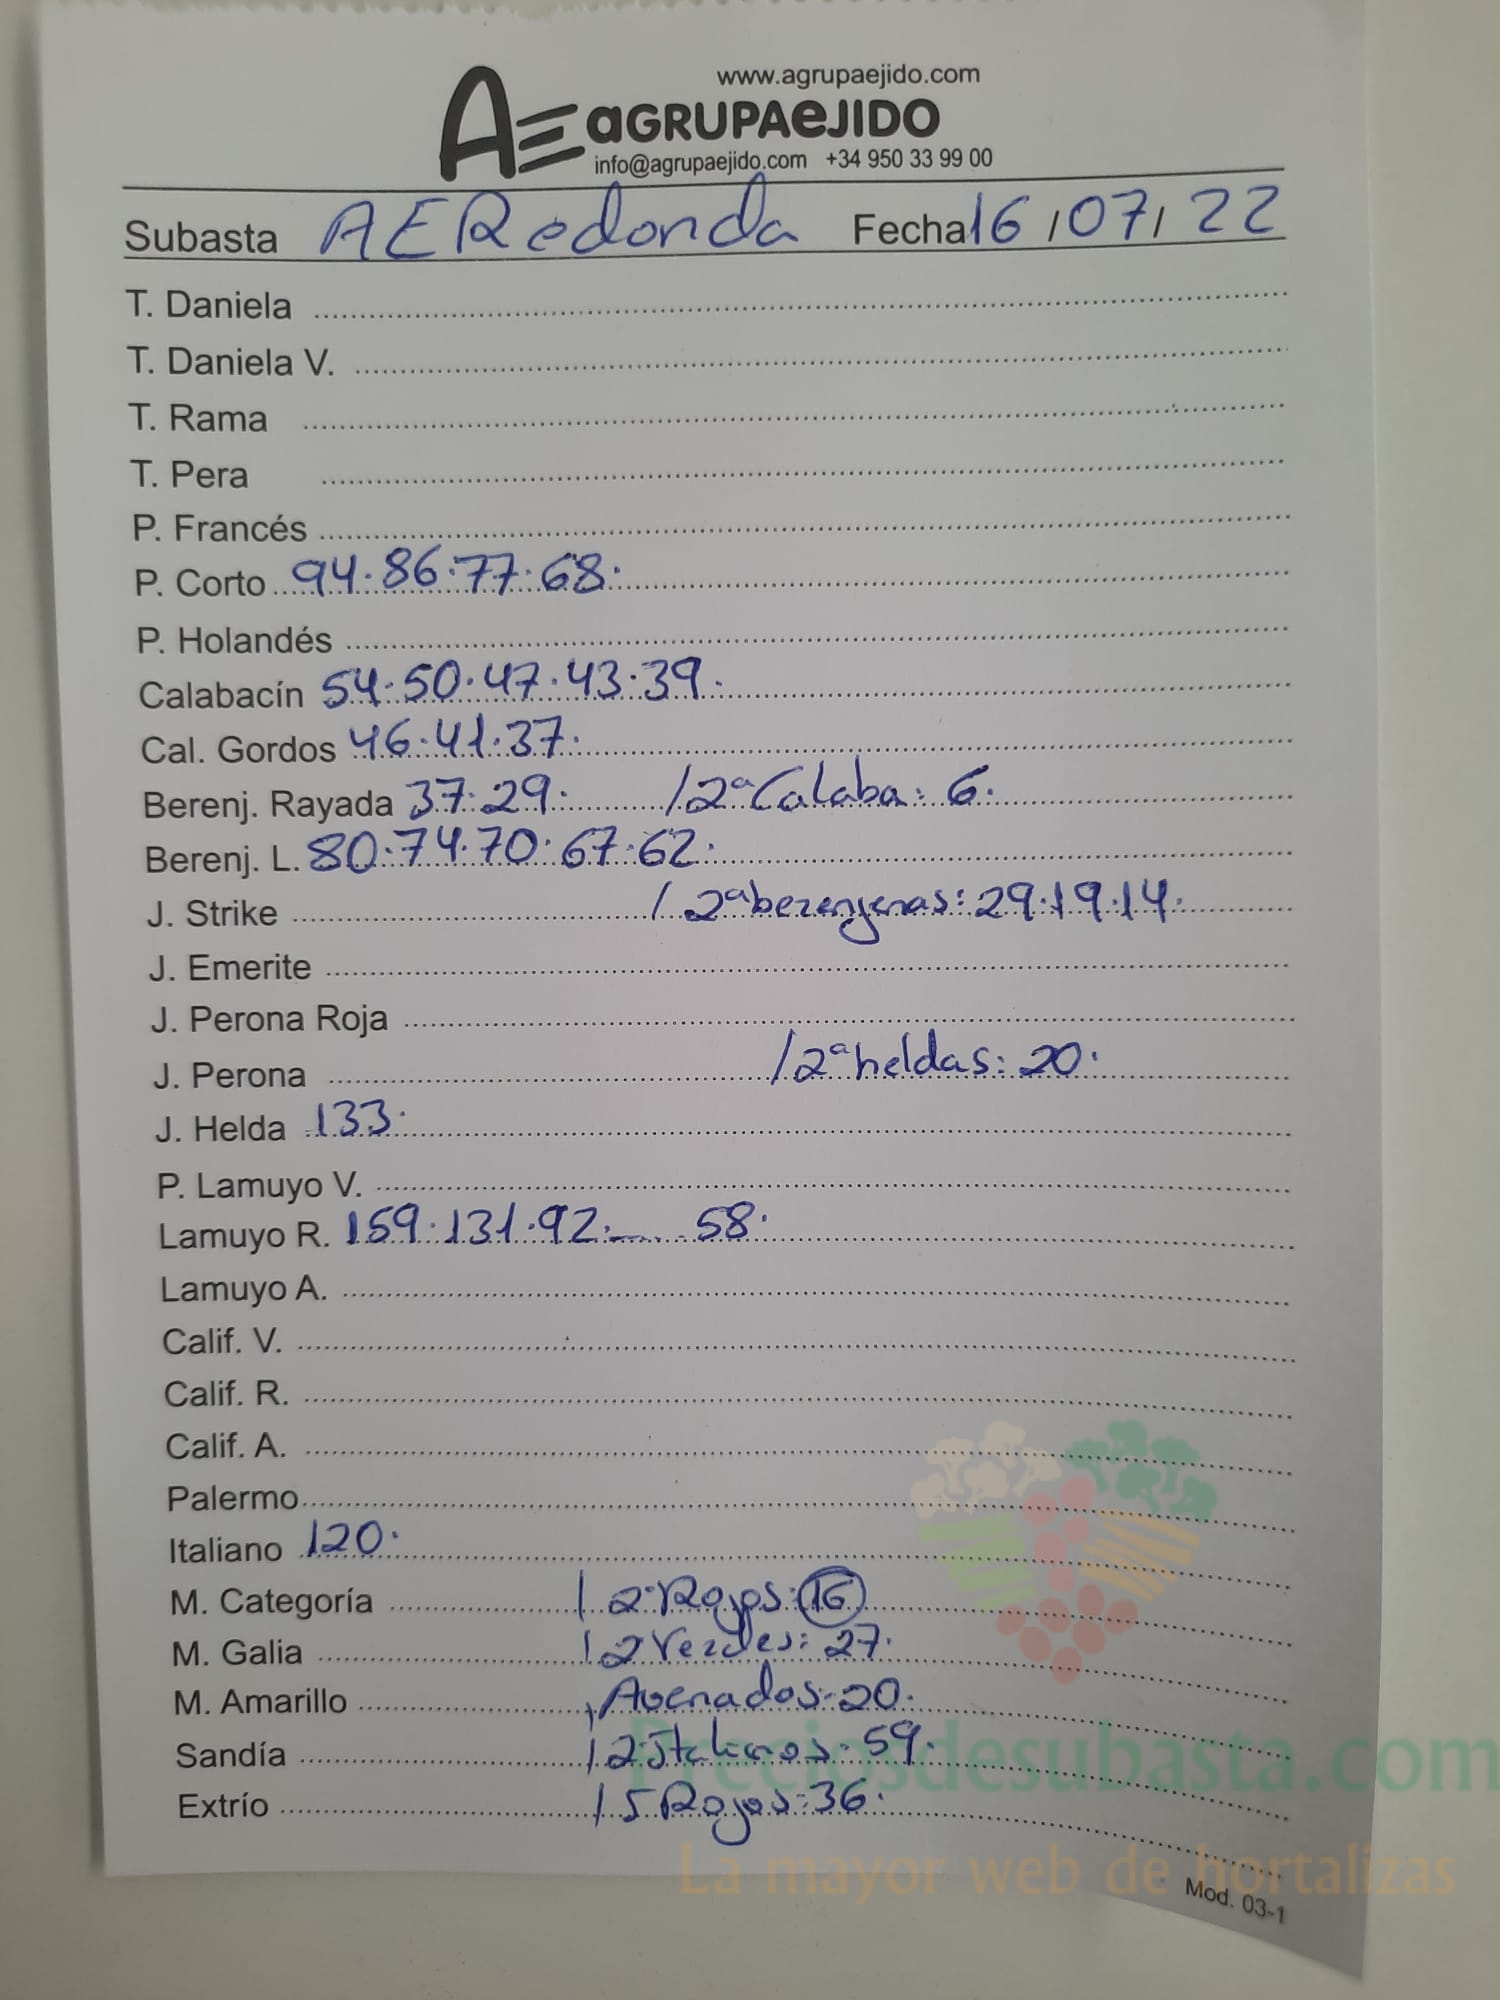 www.agrupaejido.com
AE aGRUPAeJIDO
info@agrupaejido.com +34 950 33 99 00
Subasta AERedonda Fecha 16/07/22
T. Daniela
T. Daniela V.
T. Rama
T. Pera
P. Francés
P. Corto 94.86.77.68.
P. Holandés
Calabacín 54.50.47.43.39.
Cal. Gordos 46.41.37.
Berenj. Rayada 37.29. /2ªCalaba: 6.
Berenj. L. 80.74.70.67.62.
J. Strike /2ªberenjenas: 29.19.14.
J. Emerite
J. Perona Roja
J. Perona /2ªheldas: 20.
J. Helda 133.
P. Lamuyo V.
Lamuyo R. 159.131.92.__ 58.
Lamuyo A.
Calif. V.
Calif. R.
Calif. A.
Palermo
Italiano 120.
M. Categoría / 2ªRojos: 16
M. Galia / 2Verdes: 27.
M. Amarillo / Avenados: 20.
Sandía / 2Italianos: 59.
Extrío / 5 Rojos: 36.
Preciosdesubasta.com
La mayor web de hortalizas
Mod. 03-1